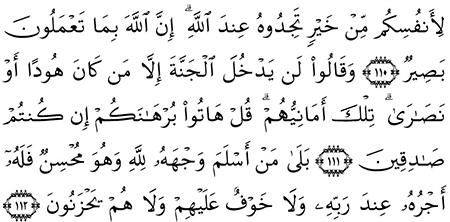 لِأَنفُسِكُم مِّنْ خَيْرٍ تَجِدُوهُ عِندَ ٱللَّهِ ۗ إِنَّ ٱللَّهَ بِمَا تَعْمَلُونَ
بَصِيرٌ ١١٠ وَقَالُوا۟ لَن يَدْخُلَ ٱلْجَنَّةَ إِلَّا مَن كَانَ هُودًا أَوْ
نَصَـٰرَىٰ ۗ تِلْكَ أَمَانِيُّهُمْ ۗ قُلْ هَاتُوا۟ بُرْهَـٰنَكُمْ إِن كُنتُمْ
صَـٰدِقِينَ ١١١ بَلَىٰ مَنْ أَسْلَمَ وَجْهَهُۥ لِلَّهِ وَهُوَ مُحْسِنٌ فَلَهُۥٓ
أَجْرُهُۥ عِندَ رَبِّهِۦ وَلَا خَوْفٌ عَلَيْهِمْ وَلَا هُمْ يَحْزَنُونَ ١١٢